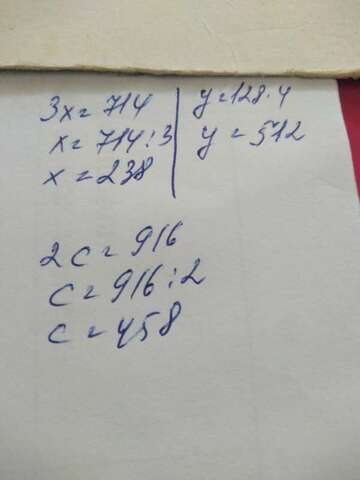 3x = 714
x = 714 : 3
x = 238
y = 128 · 4
y = 512
2c = 916
c = 916 : 2
c = 458